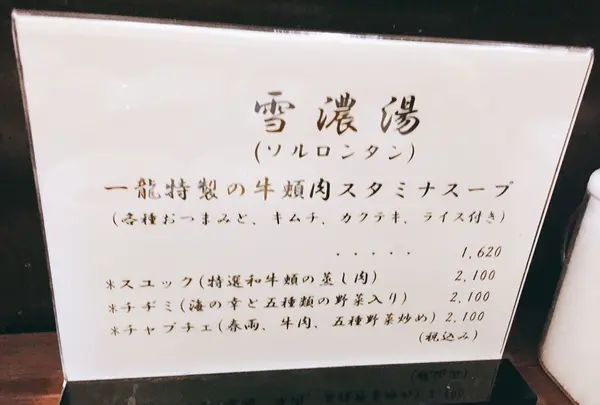 雪濃湯
(ソルロンタン)
一龍特製の牛頬肉スタミナスープ
(各種おつまみと、キムチ、カクテキ、ライス付き)
・・・・・ 1,620
*スユック(特選和牛頬の蒸し肉) 2,100
*チヂミ(海の幸と五種類の野菜入り) 2,100
*チャプチェ(春雨、牛肉、五種野菜炒め) 2,100
(税込み)